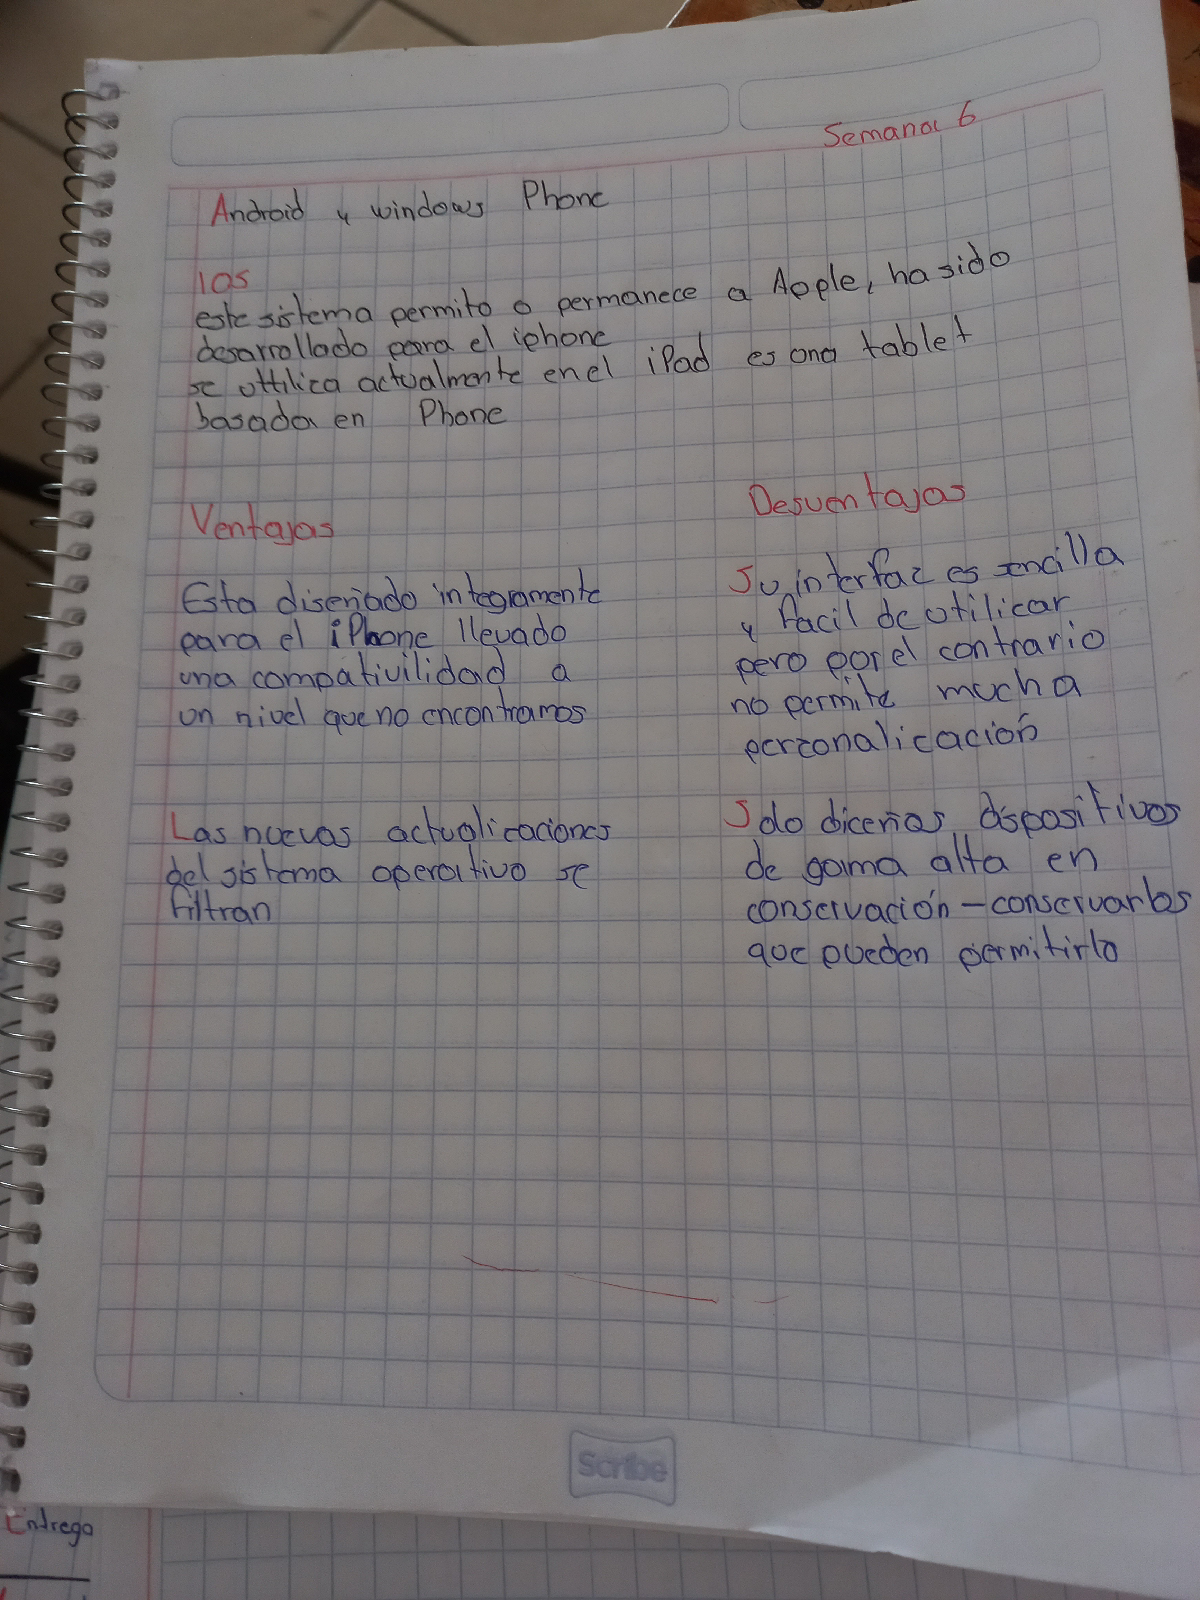 Semana 6
Android y windows Phone
IOS
este sistema permito o permanece a Apple, ha sido
desarrollado para el iphone
se uttilica actualmente en el iPad es una tablet
basada en Phone
Ventajas
Esta diseñado integramente
para el iPhone llevado
una compativilidad a
un nivel que no encontramos
Las nuevas actualicaciones
del sistema operativo se
filtran
Desventajas
Su interfaz es sencilla
y facil de utilicar
pero por el contrario
no permite mucha
perzonalicación
Solo diceñas dispositivos
de gama alta en
conservación - conservarlos
que pueden permitirlo
Scribe
Entrega